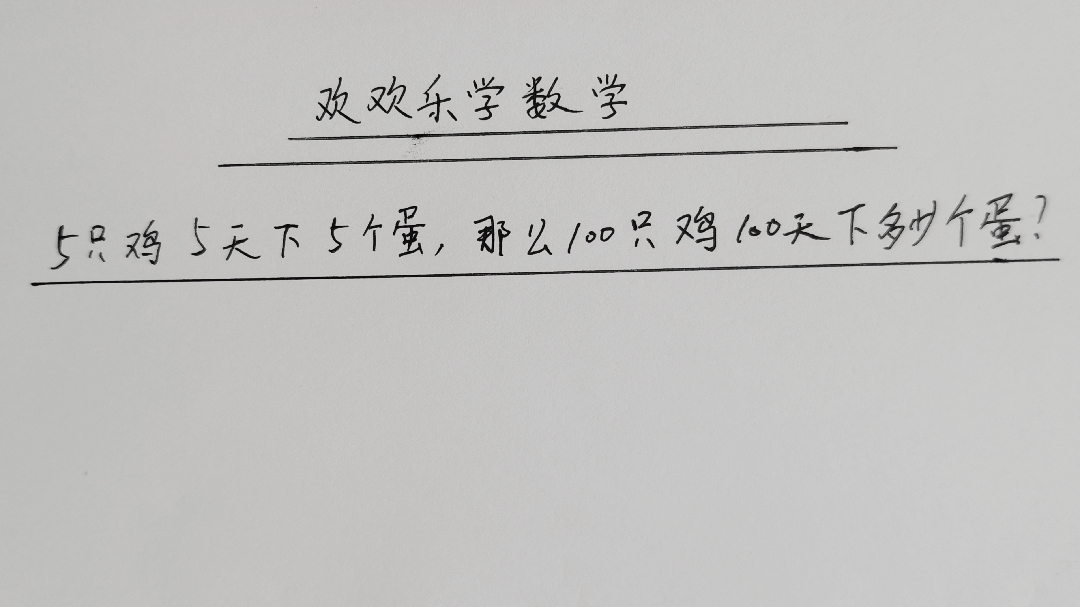 欢欢乐学数学
5只鸡5天下5个蛋,那么100只鸡100天下多少个蛋?